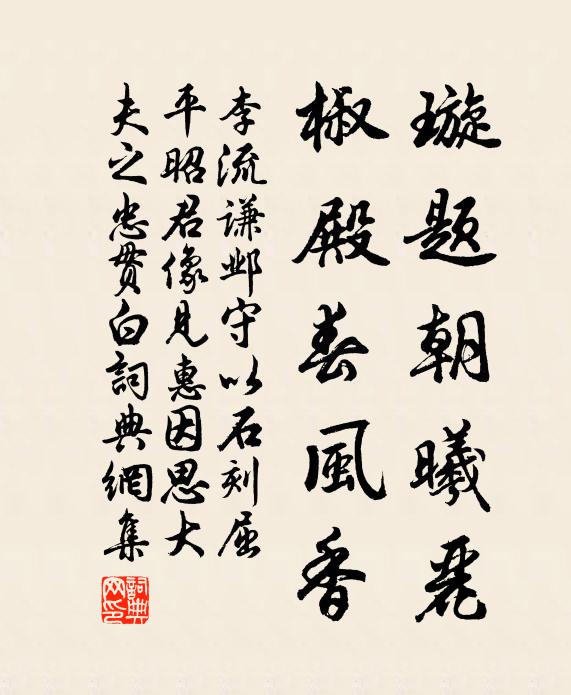 璇題朝曦麗
椒殿春風香
李流謙邺守以石刻屈
平昭君像見惠因思大
夫之忠貫白詞典網集